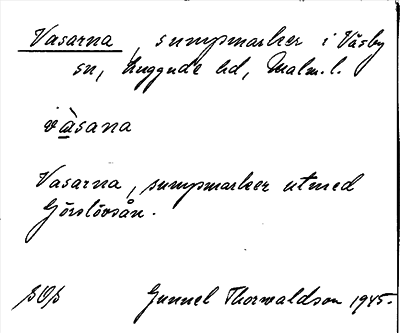 Vasarna, sumpmarker i Väsby
sn, Luggude hd, Malm. l.
vàsana
Vasarna, sumpmarker utmed
Görslövsån.
Gunnel Thorwaldson 1945.